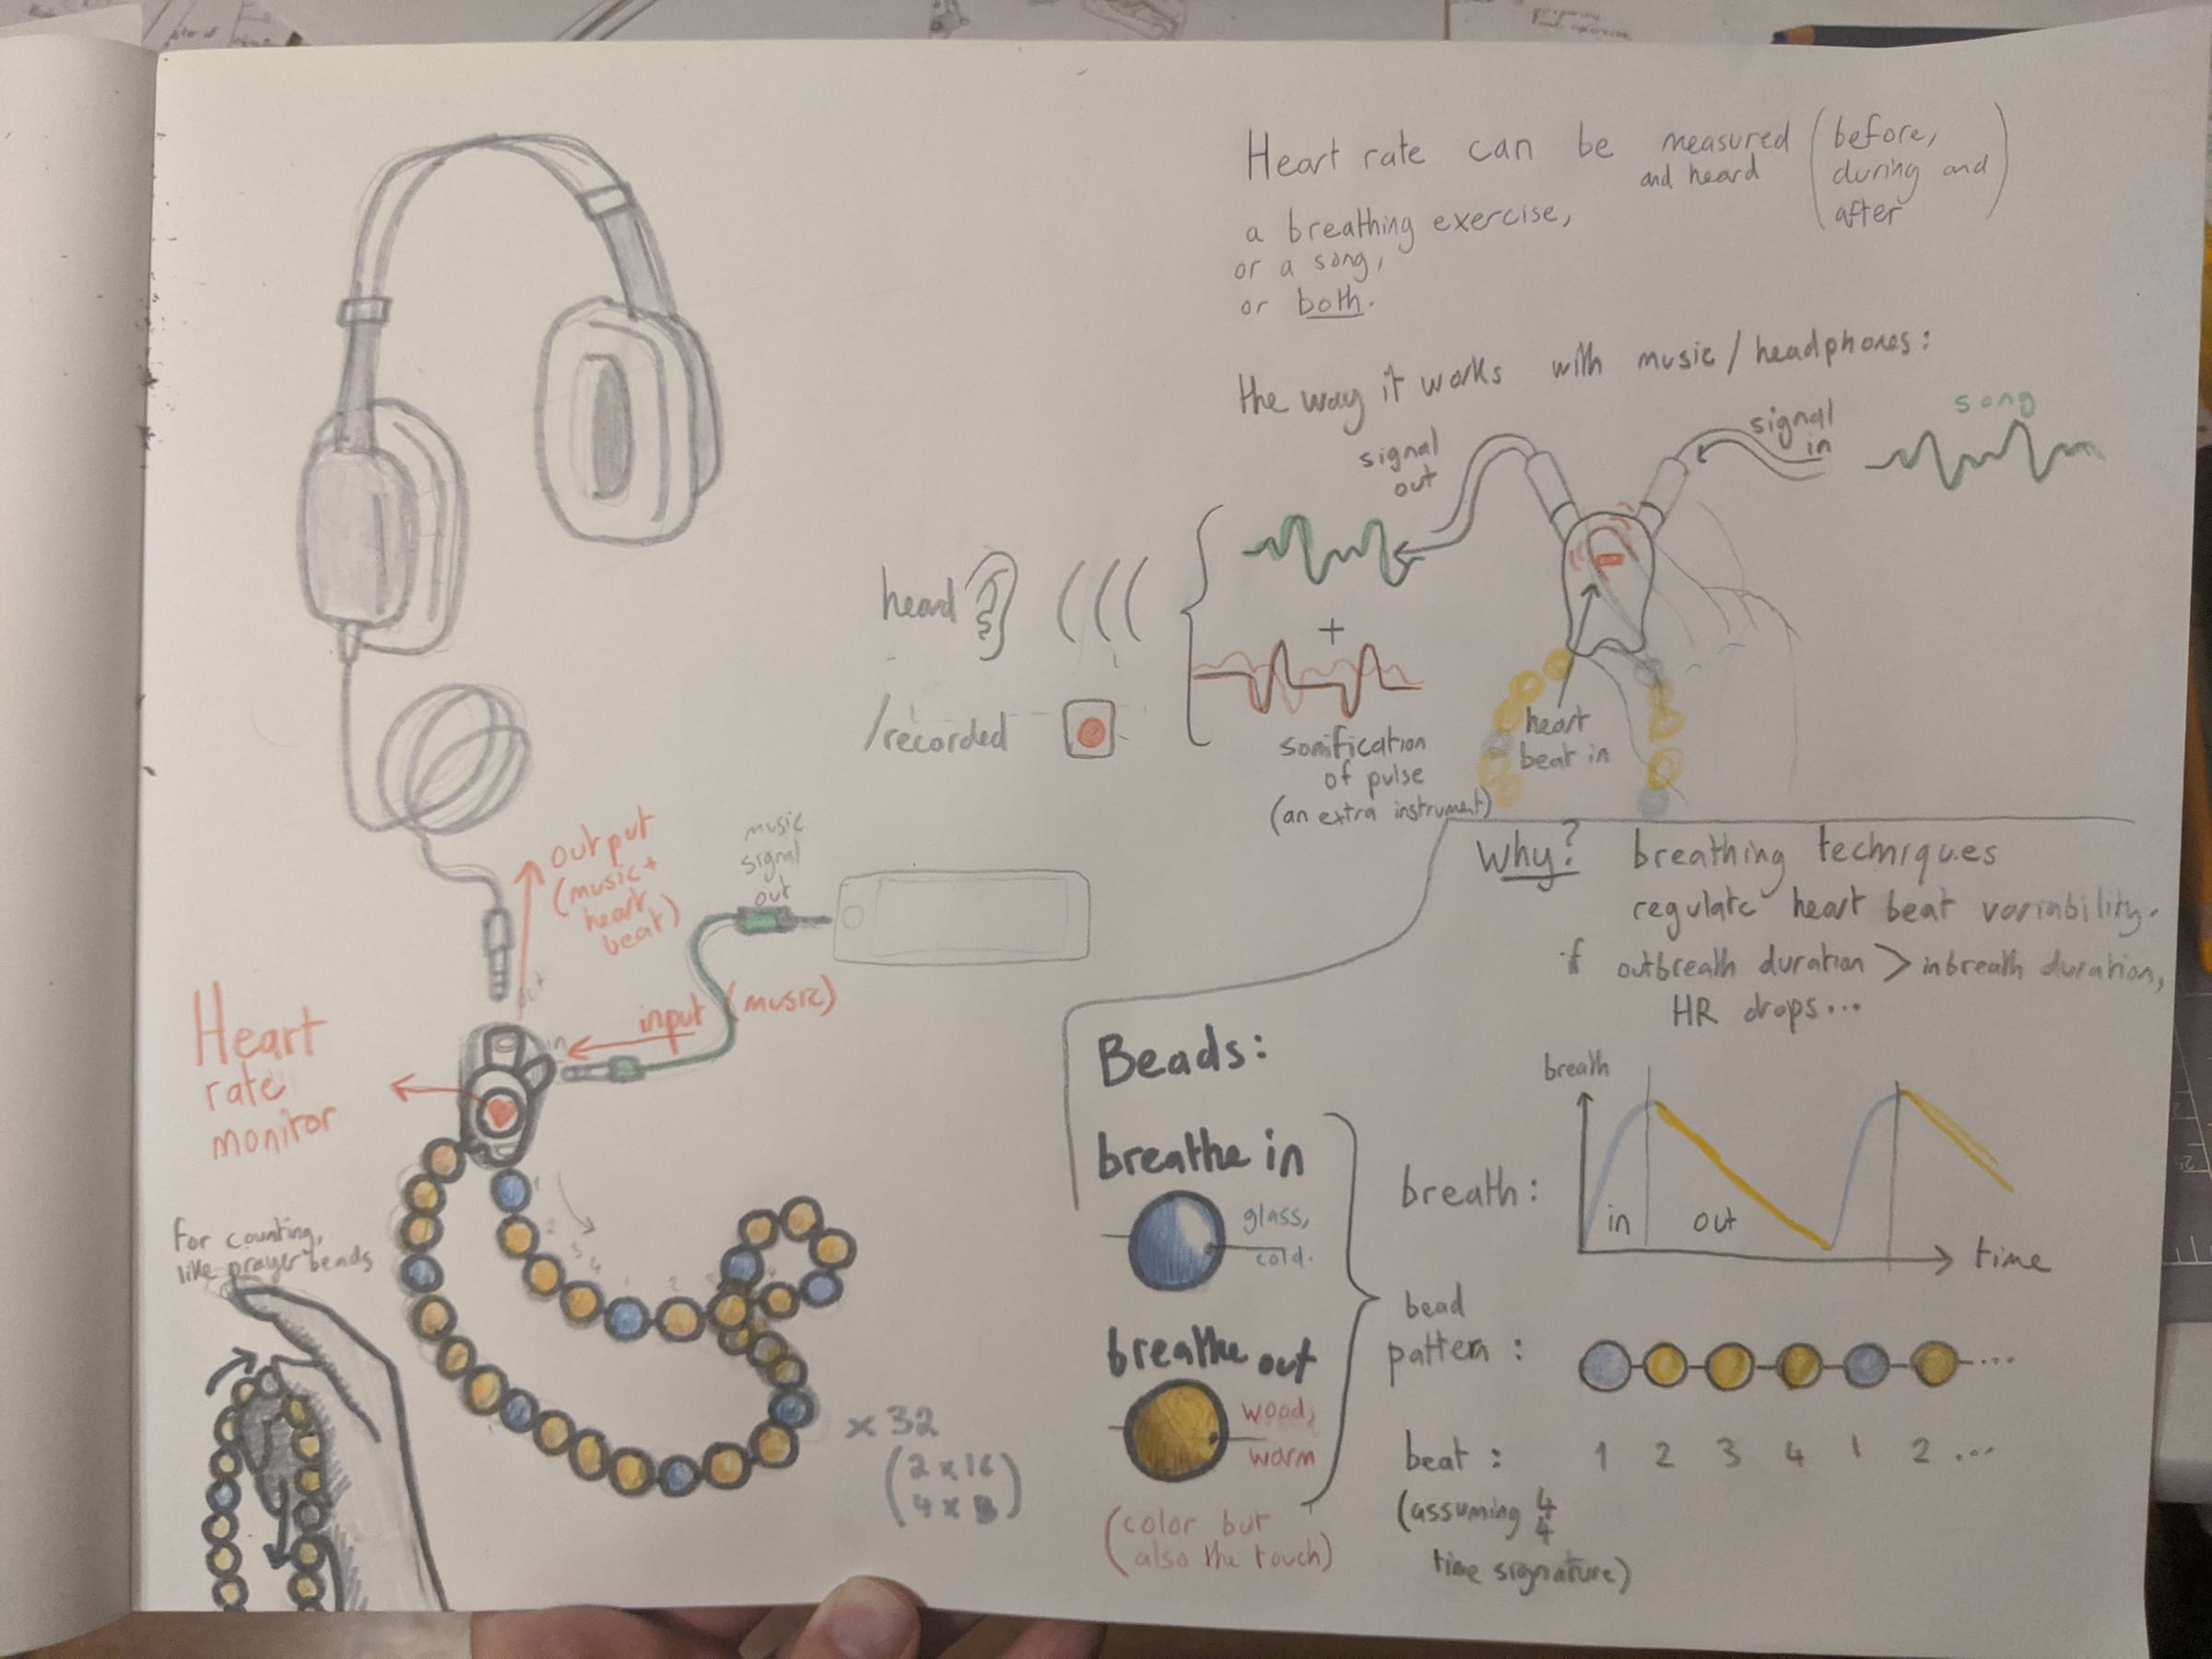 Heart rate can be measured and heard (before, during and after)
a breathing exercise,
or a song,
or both.
the way it works with music / headphones:
song
signal in
signal out
heard
+
/recorded
heart beat in
sonification
of pulse
(an extra instrument)
output
(music +
heart
beat)
music
signal
out
input (music)
out
in
Heart
rate
monitor
For counting,
like prayer beads
1
2
3
4
1
2
3
4
x 32
(2 x 16
4 x 8)
Why? breathing techniques
regulate heart beat variability.
if outbreath duration > inbreath duration,
HR drops...
Beads:
breathe in
glass,
cold.
breathe out
wood,
warm
(color but
also the touch)
breath
breath:
in
out
time
bead
pattern :
...
beat : 1 2 3 4 1 2 ...
(assuming 4/4
time signature)